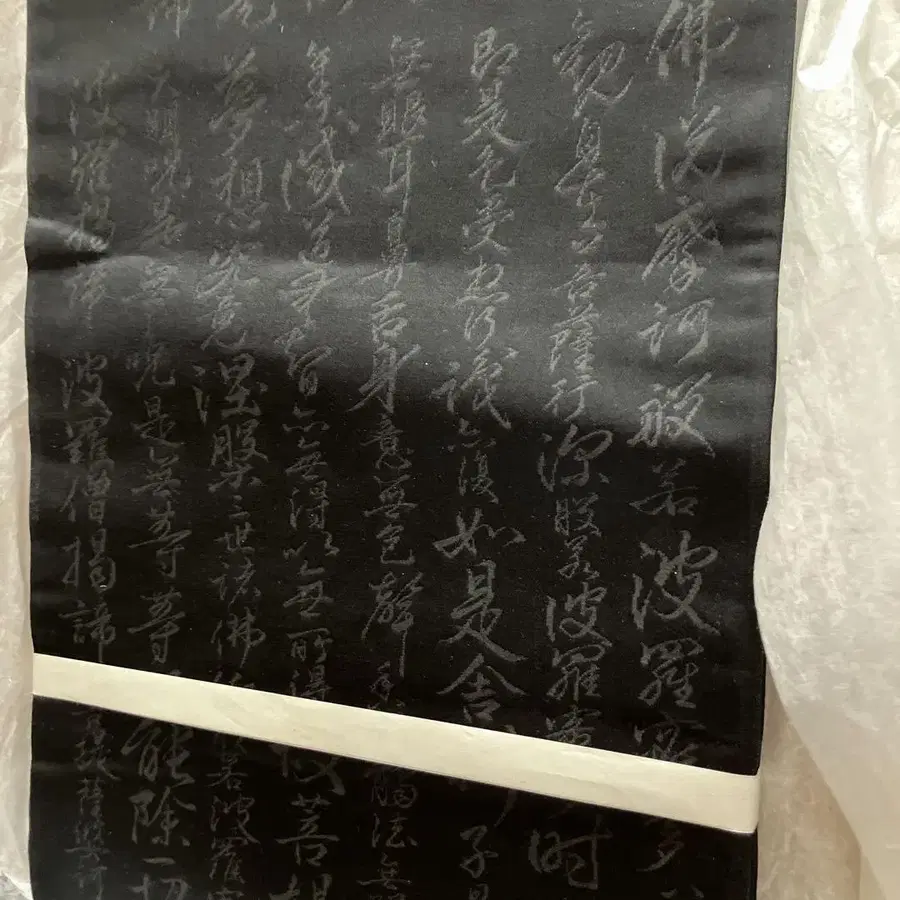 佛说摩訶般若波羅蜜多
觀自在菩薩行深般若波羅蜜多時
即是色受想行識亦復如是舍利子是
無眼耳鼻舌身意無色聲香味觸法無眼
集滅道無智亦無得以無所得故菩提
夢想究竟涅槃三世諸佛依般若波羅蜜
大明咒是無上咒是無等等咒能除一切
波羅揭諦波羅僧揭諦菩提薩婆訶